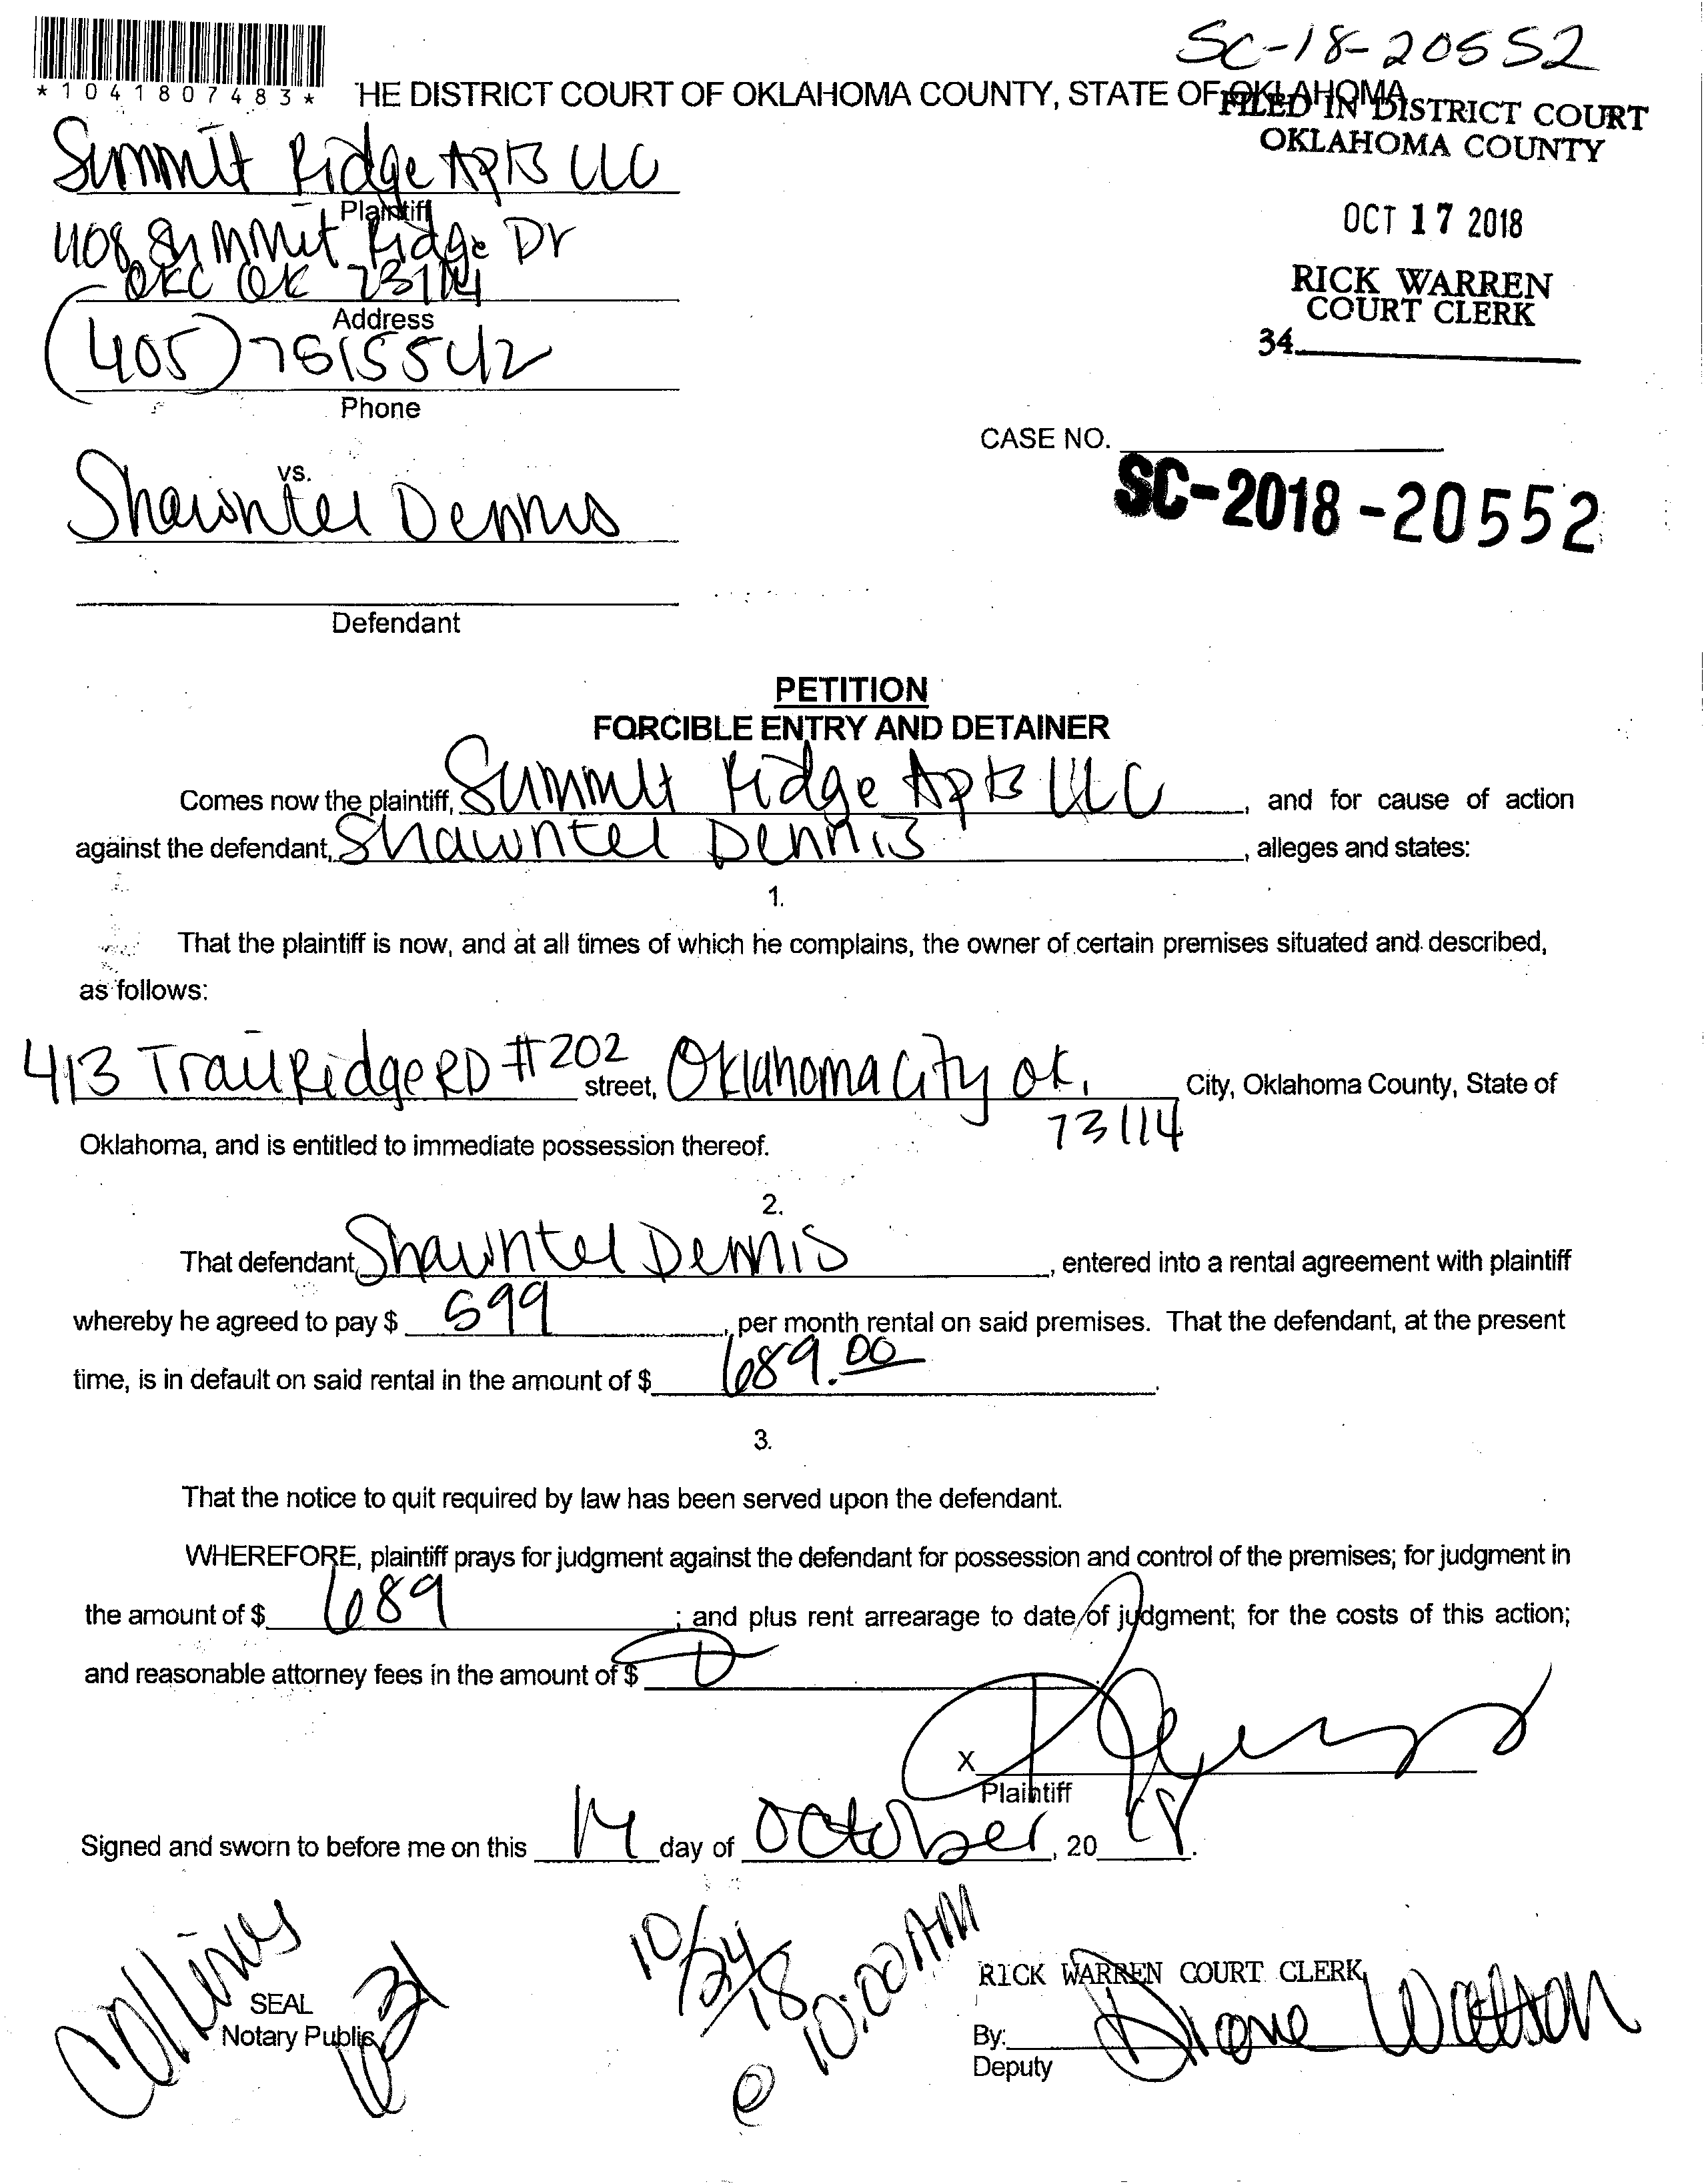 SC-18-20552
*1041807483*
HE DISTRICT COURT OF OKLAHOMA COUNTY, STATE OF OKLAHOMA
FILED IN DISTRICT COURT
OKLAHOMA COUNTY
OCT 17 2018
RICK WARREN
COURT CLERK
34
Summit Ridge Apts LLC
Plaintiff
408 Summit Ridge Dr
OKC OK 73114
Address
(405) 7515542
Phone
CASE NO.
SC-2018-20552
vs.
Shawntel Dennis
Defendant
PETITION
FORCIBLE ENTRY AND DETAINER
Comes now the plaintiff, Summit Ridge Apts LLC, and for cause of action
against the defendant, Shawntel Dennis, alleges and states:
1.
That the plaintiff is now, and at all times of which he complains, the owner of certain premises situated and described,
as follows:
413 Trail Ridge RD #202 street, Oklahoma City OK, City, Oklahoma County, State of
73114
Oklahoma, and is entitled to immediate possession thereof.
2.
That defendant, Shawntel Dennis, entered into a rental agreement with plaintiff
whereby he agreed to pay $ 599, per month rental on said premises. That the defendant, at the present
time, is in default on said rental in the amount of $ 689.00.
3.
That the notice to quit required by law has been served upon the defendant.
WHEREFORE, plaintiff prays for judgment against the defendant for possession and control of the premises; for judgment in
the amount of $ 689; and plus rent arrearage to date of judgment; for the costs of this action;
and reasonable attorney fees in the amount of $
X
Plaintiff
Signed and sworn to before me on this day of October, 20 18.
Collins
SEAL
Notary Public
10/24/18
@ 10:00 AM
RICK WARREN COURT CLERK
By: Diane Watson
Deputy